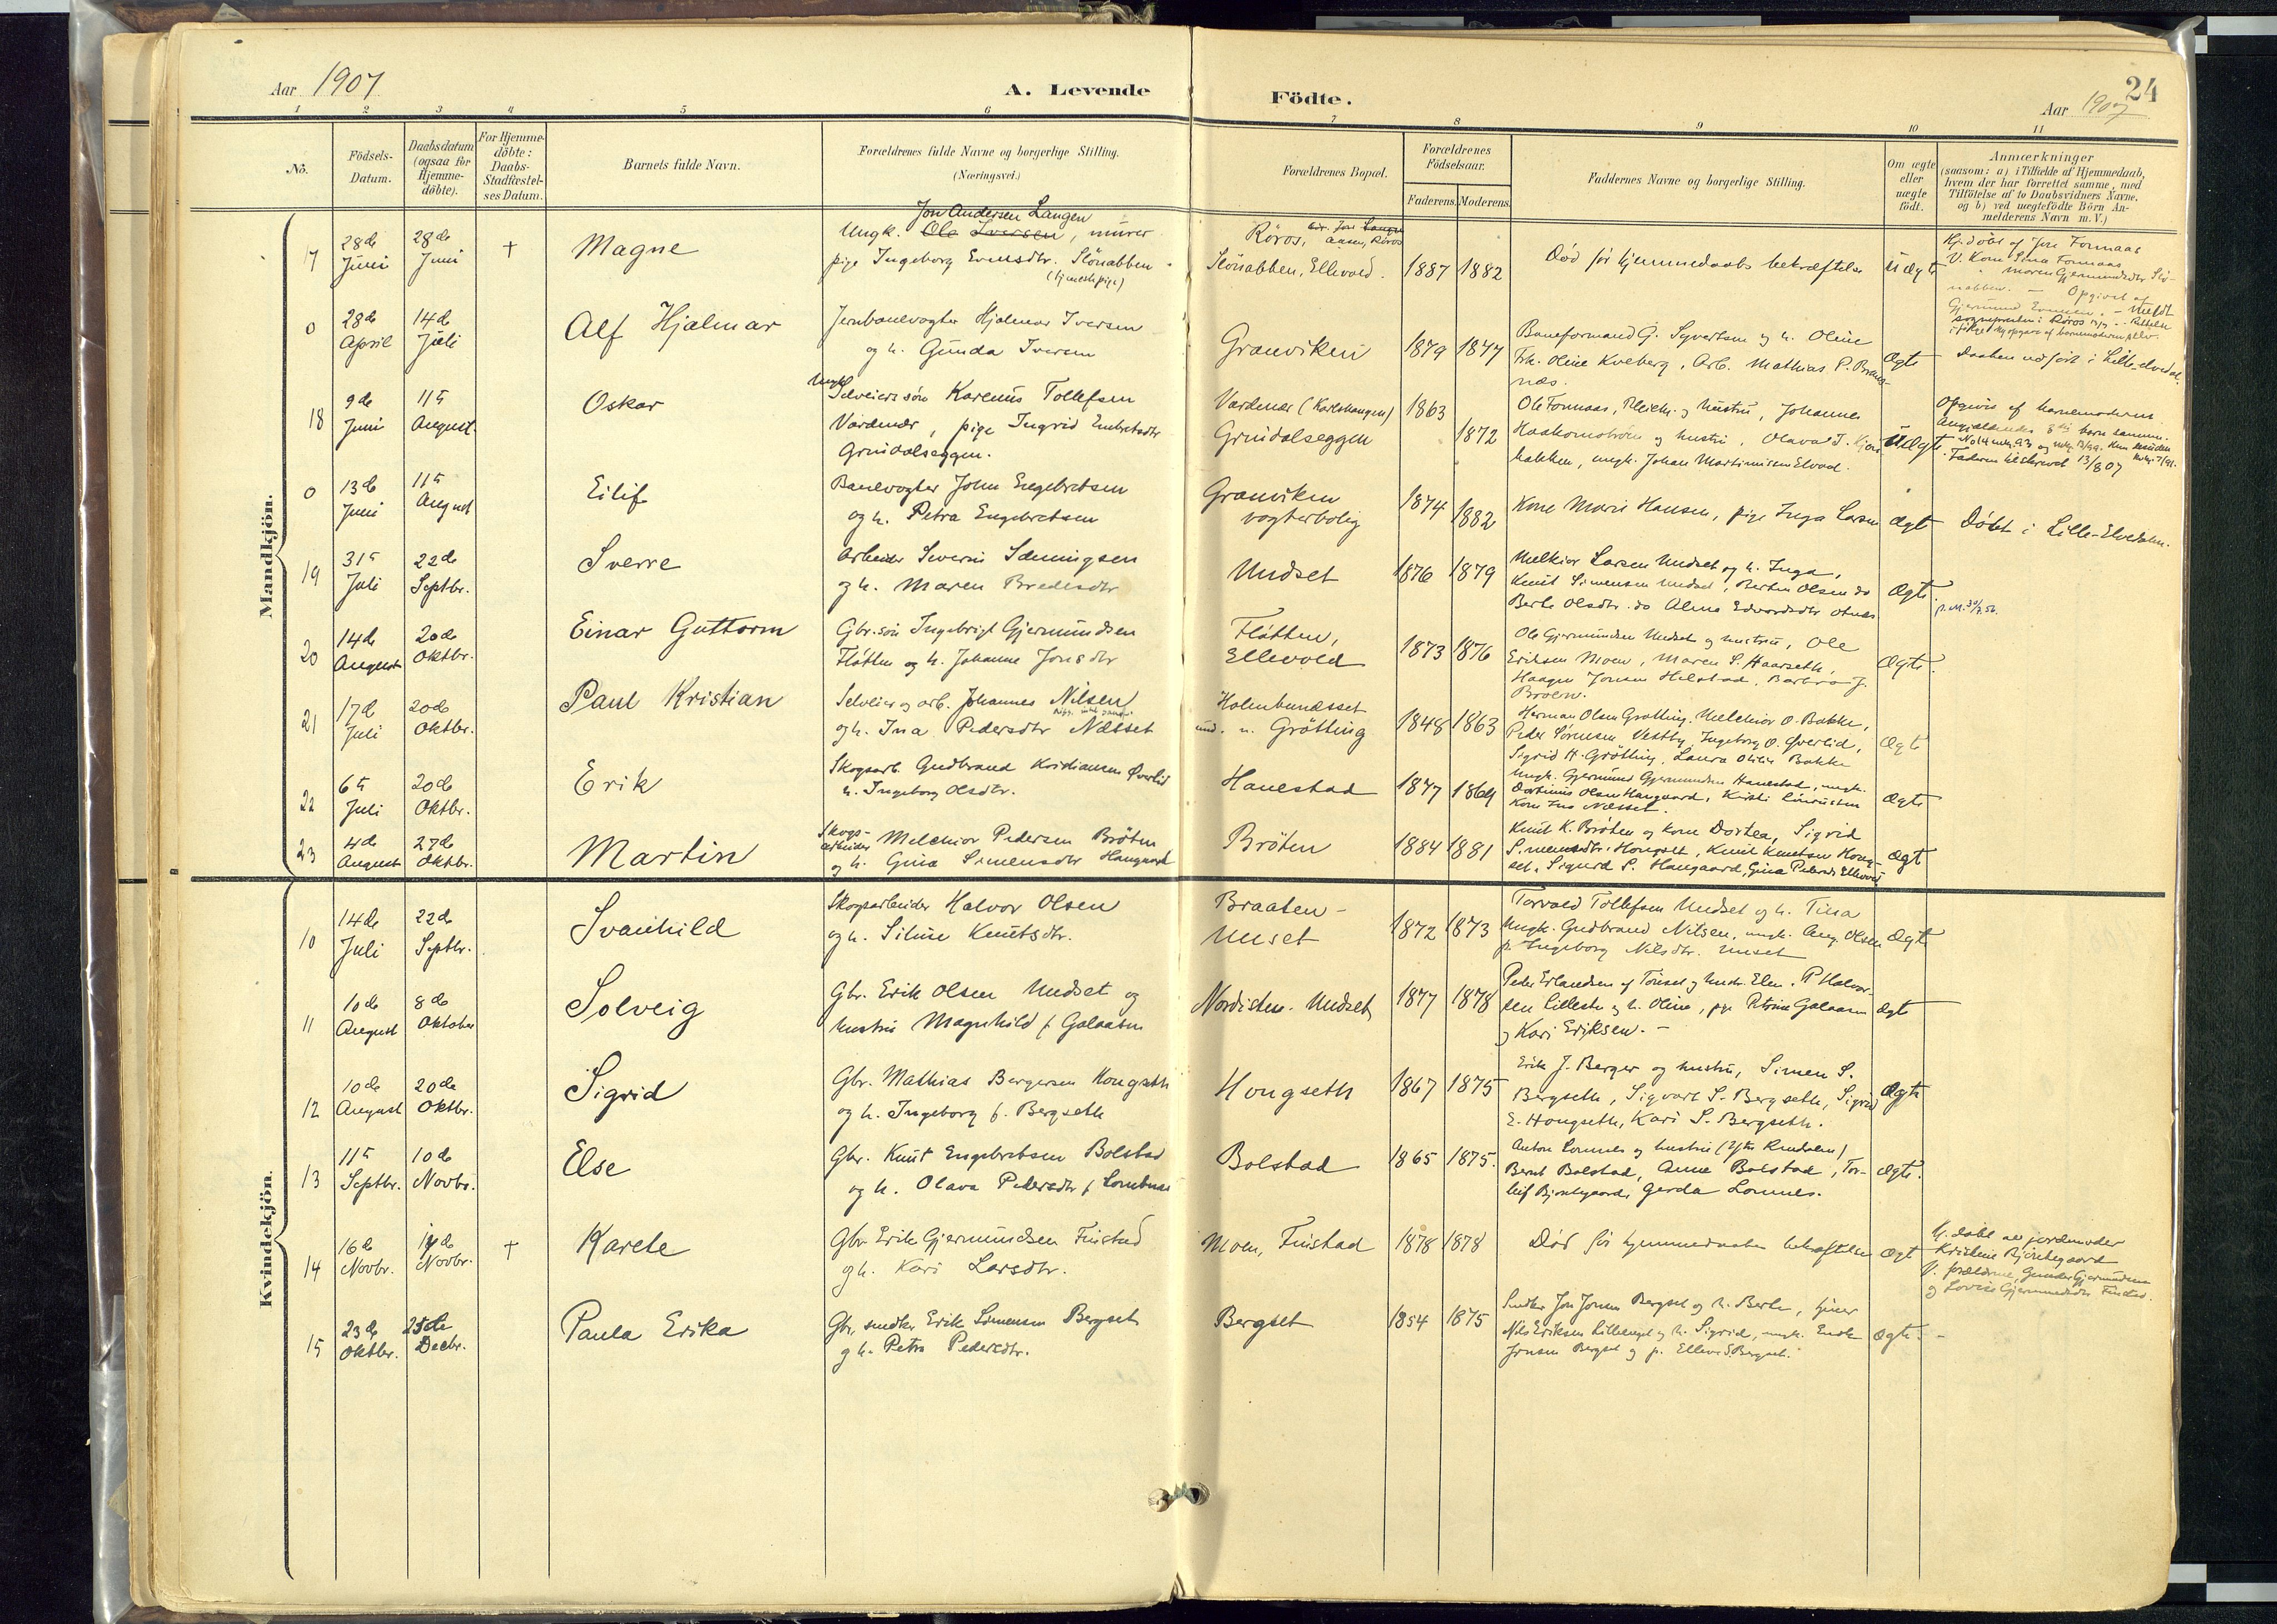 Aar 1907
A. Levende
Födte.
24
Aar 1907
1 2 3 4 5 6 7 8 9 10 11
No.
Födsels-
Datum.
Daabsdatum
(ogsaa for
Hjemme-
döbte).
For Hjemme-
döbte:
Daabs-
Stadfæstel-
ses Datum.
Barnets fulde Navn.
Forældrenes fulde Navne og borgerlige Stilling.
(Næringsvei.)
Forældrenes Bopæl.
Forældrenes
Födselsaar.
Faderens. Moderens.
Faddernes Navne og borgerlige Stilling.
Om ægte
eller
uægte
födt.
Anmærkninger
(saasom: a) i Tilfælde af Hjemmedaab,
hvem der har forrettet samme, med
Tilföielse af to Daabsvidners Navne.
og b) ved uegtefödte Börn An-
melderens Navn m. V.)
Mandkjön.
17
28de
Juni
28de
Juni
†
Magne
Jon Andersen Langen
Ungk. Ole Iversen, murer
pige Ingeborg Evensdtr. Slönabben
Röros,
Slönabben, Ellevold.
1887 1882
Död før hjemmedaabs bekræftelse
Uægte
Hj. döbt af Jon Formaas
V. Kone Sina Formaas
0
28de
April
14de
Juli
Alf Hjalmar
Jernbanevogter Hjalmar Iversen
og h. Gunda Iversen
Granviken
1879 1877
Baneformand G. Syvertsen og h. Oline
Frk. Oline Kveberg, Arb. Mathias P. Brænd-
næs.
Ægte
Daaben udført i Lille-elvedal.
18
9de
Juni
11te
August.
Oskar
Ungk.
Selveiers søn Karenus Tollefsen
Vardenær, pige Ingrid Embretsdtr
Grindalseggen.
Vardenær (Karlshaugen)
Grindalseggen
1863
1872
Ole Formaas, Bleiche. og hustru, Johannes
Haakonströen og hustru, Olava J.
bakken, ungk. Johan Martinusen Elvad.
Uægte.
Opgivet af barnemoderen
Faderen tilskrevet 13/8 07
0
13de
Juni
11te
August
Eilif
Banevogter John Engebretsen
og h. Petra Engebretsen
Granviken
vogterbolig
1874
1882
Kone Marie Hansen, pige Inga Larsen
Ægte
Döbt i Lille-Elvedalen.
19
31te
Juli
22de
Septbr.
Sverre
Arbeider Severin Sæmingsen
og h. Maren Bredesdtr
Undset
1876 1879
Melkior Larsen Undset og h. Inga,
Knut Simensen Undset, Berten Olsen do
Berte Olsdtr. do Alma Edvardsdtr Otnes
Ægte.
20
14de
August
20de
Oktbr.
Einar Guttorm
Gbr.søn Ingebrigt Gjermundsen
Fløtten og h. Johanne Jonsdtr
Fløtten,
Ellevold
1873 1876
Ole Gjermundsen Undset og hustru, Ole
Eriksen Moen, Maren S. Haarseth,
Haagen Jonsen Hilstad, Barbro J.
Broen.
Ægte.
21
17de
Juli
20de
Oktbr.
Paul Kristian
Selveier og arb. Johannes Nilsen
og h. Ina Pedersdtr Næsset
Holenbunæsset
und. n. Grøtting
1848 1863
Herman Olsen Grøtting, Melchior O. Bakke,
Peder Sørensen Vestby, Ingeborg O. Øverlid,
Sigrid H. Grøtting, Laura Otilie Bakke
Ægte
22
6te
Juli
20de
Oktbr.
Erik
Skogsarb. Gudbrand Kristiansen Øverlid
h. Ingeborg Olsdtr.
Hanestad
1877 1864
Ungk. Gjermund Gjermundsen Hanestad, ungk.
Dortinus Olsen Haugaard, Kirsti Simensen
Kone Ina Næsset.
Ægte
23
4de
August
27de
Oktbr.
Martin
Skogs-
arbeider Melchior Pedersen Bröten
og h. Gina Simensdtr Haugaard
Bröten
1884 1881
Knut K. Bröten og kone Dortea, Sigrid
Simensdtr. Hongset, Knut Knutsen Hong-
set, Sigurd S. Haugaard, Gina Pedersdtr Ellevold
Ægte
Kvindekjön.
10
14de
Juli
22de
Septbr.
Svanhild
Skogsarbeider Halvor Olsen
og h. Siline Knutsdtr.
Braaten-
Unset
1872 1873
Torvald Tollefsen Undset og h. Tina
Ungk. Gudbrand Nilsen, ungk. Aug. Olsen
p. Ingeborg Nilsdtr. Unset
Ægte
11
10de
August
8de
Oktober
Solveig
Gbr. Erik Olsen Undset og
hustru Magnhild f. Galaasen
Nordistuen. Undset
1877 1878
Peder Erlandsen af Tönset og hustr. Elen. P Halvor-
sen Lilleste og h. Oline, pge Petrine Galaasen
og Kari Eriksen. -
Ægte
12
10de
August
20de
Oktbr.
Sigrid
Gbr. Mathias Bergersen Hongseth
og h. Ingeborg f. Bergseth
Hongseth
1867 1875
Erik J. Berger og hustru, Simen S.
Bergseth, Sigvart S. Bergseth, Sigrid
E. Hongseth, Kari S. Bergseth.
Ægte
13
11te
Septbr.
10de
Novbr.
Else
Gbr. Knut Engebretsen Bolstad
og h. Olava Pedersdtr f. Lombnæs
Bolstad
1865 1875.
Anton Lomnes og hustru (Ytre Rendalen)
Bernt Bolstad, Anne Bolstad, Tor-
leif Bjontegaard, Gerda Lomnes.
Ægte.
14
16de
Novbr.
17de
Novbr.
†
Karete
Gbr Erik Gjermundsen Finstad
og h. Kari Larsdtr.
Moen, Finstad
1878 1878
Død før hjemmedaaben bekræftelse
Ægte
Hj. døbt av jordemoder
Kristine Bjøntegaard
V. forældrene, Gunder Gjermundsen
og Lovise Gjermundsdtr Finstad.
15
23de
Oktbr.
25de
Decbr.
Paula Erika
Gbr. snedker Erik Simensen Bergset
og h. Petra Pedersdtr.
Bergset
1854 1875
Snedker Jon Jonsen Bergset og h. Berte,
Nils Eriksen Lillebergset og h. Sigrid, ungk. Endre
Jonsen Bergset og p. Ellen S. Bergset.
Ægte. -